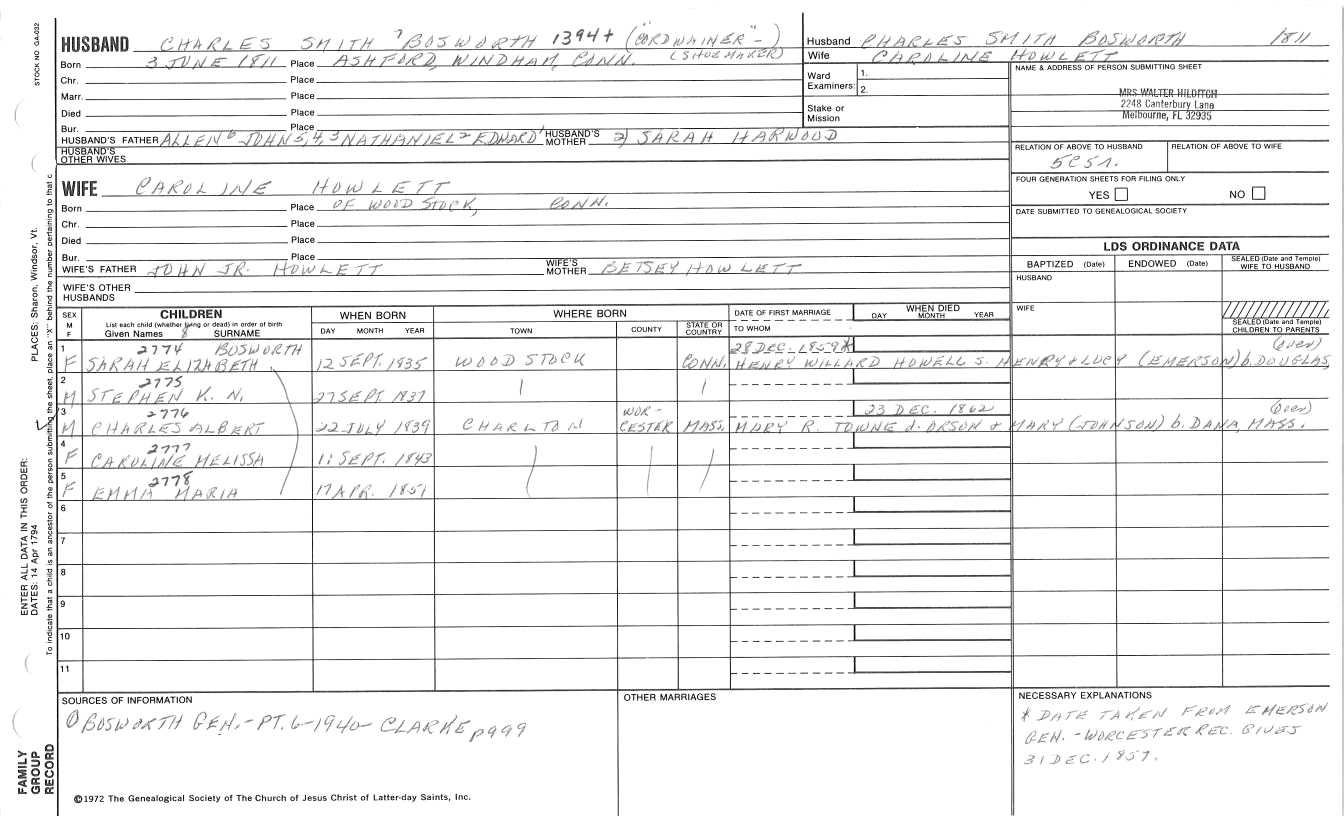 STOCK NO GA-032
PLACES: Sharon, Windsor, Vt.
ENTER ALL DATA IN THIS ORDER:
DATES: 14 Apr 1794
To indicate that a child is an ancestor of the person submitting the sheet, place an "X" behind the number pertaining to that c
FAMILY GROUP RECORD
HUSBAND CHARLES SMITH 7 BOSWORTH 1394+ ("CORDWAINER" -)
(SHOE MAKER)
Born 3 JUNE 1811 Place ASHFORD, WINDHAM, CONN.
Chr. Place
Marr. Place
Died Place
Bur. Place
HUSBAND'S FATHER ALLEN 6 JOHN 5, 4, 3 NATHANIEL 2 EDWARD 1 HUSBAND'S MOTHER 2) SARAH HARWOOD
HUSBAND'S OTHER WIVES
Husband CHARLES SMITH BOSWORTH 1811
Wife CAROLINE HOWLETT
Ward Examiners: 1.
2.
Stake or Mission
NAME & ADDRESS OF PERSON SUBMITTING SHEET
MRS WALTER HILDITCH
2248 Canterbury Lane
Melbourne, FL 32935
RELATION OF ABOVE TO HUSBAND RELATION OF ABOVE TO WIFE
5C5r.
FOUR GENERATION SHEETS FOR FILING ONLY
YES NO
DATE SUBMITTED TO GENEALOGICAL SOCIETY
WIFE CAROLINE HOWLETT
Born Place OF WOODSTOCK, CONN.
Chr. Place
Died Place
Bur. Place
WIFE'S FATHER JOHN JR. HOWLETT WIFE'S MOTHER BETSEY HOWLETT
WIFE'S OTHER HUSBANDS
LDS ORDINANCE DATA
BAPTIZED (Date) ENDOWED (Date) SEALED (Date and Temple) WIFE TO HUSBAND
HUSBAND
WIFE
SEALED (Date and Temple) CHILDREN TO PARENTS
SEX M F CHILDREN WHEN BORN WHERE BORN DATE OF FIRST MARRIAGE WHEN DIED
List each child (whether living or dead) in order of birth
Given Names 8 SURNAME DAY MONTH YEAR TOWN COUNTY STATE OR COUNTRY TO WHOM DAY MONTH YEAR
1 2774 BOSWORTH 28 DEC. 1859* (over)
F SARAH ELIZABETH 12 SEPT. 1835 WOODSTOCK CONN. HENRY WILLARD HOWELL S. HENRY & LUCY (EMERSON) b. DOUGLAS,
2 2775
M STEPHEN K. N. 27 SEPT. 1837
3 2776 WOR- 23 DEC. 1862 (over)
M CHARLES ALBERT 22 JULY 1839 CHARLTON CESTER MASS. MARY R. TOWNE d. ORSON & MARY (JOHNSON) b. DANA, MASS.
4 2777
F CAROLINE MELISSA 11 SEPT. 1843
5 2778
F EMMA MARIA 17 APR. 1851
6
7
8
9
10
11
SOURCES OF INFORMATION
① BOSWORTH GEN. - PT. 6 - 1940 - CLARKE p999
OTHER MARRIAGES
NECESSARY EXPLANATIONS
* DATE TAKEN FROM EMERSON
GEN. - WORCESTER REC. GIVES
31 DEC. 1857.
©1972 The Genealogical Society of The Church of Jesus Christ of Latter-day Saints, Inc.